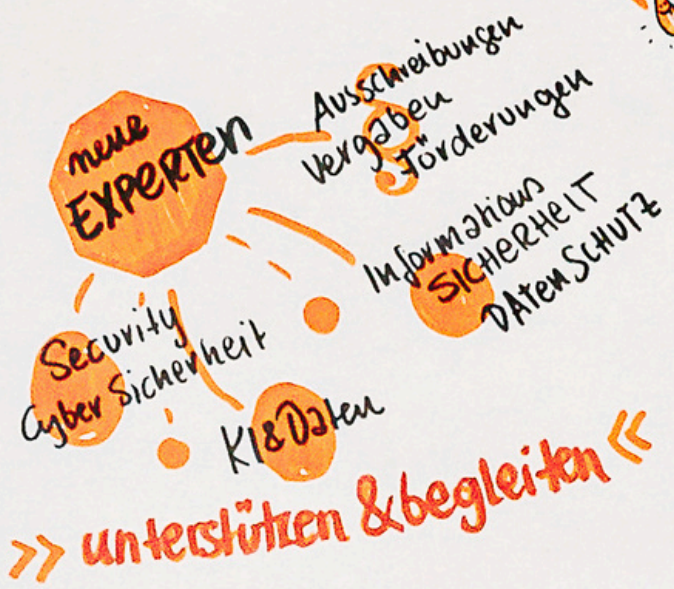 neue
EXPERTEN
Ausschreibungen
Vergaben
Förderungen
Informations
SICHERHEIT
DATENSCHUTZ
Security
Cyber Sicherheit
KI & Daten
>> unterstützen & begleiten <<